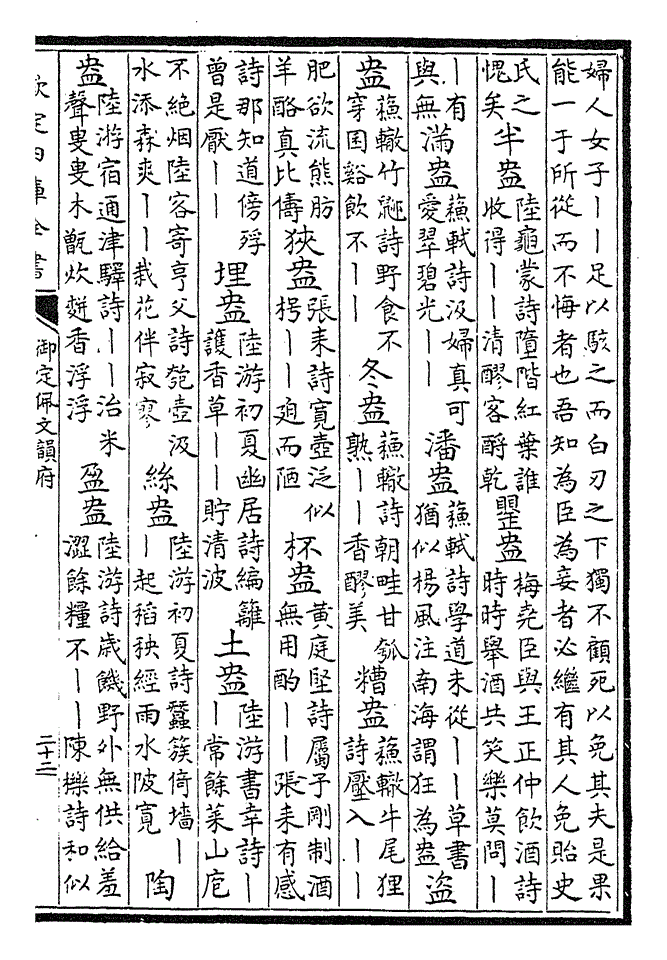 婦人女子丨丨足以駭之而白刃之下獨不顧死以免其夫是果
能一于所從而不悔者也吾知為臣為妾者必繼有其人免貽史
氏之愧矣 半盎 陸龜蒙詩墮階紅葉誰收得丨丨清醪客酹乾 罌盎 梅堯臣與王正仲飲酒詩時時舉酒共笑樂莫問丨
丨有與無 滿盎 蘇軾詩汲婦真可愛翠碧光丨丨 潘盎 蘇軾詩學道未從丨丨草書猶似楊風注南海謂狂為盎 盗
盎 蘇轍竹䶉詩野食不穿囷谿飲不丨丨 冬盎 蘇轍詩朝畦甘瓠熟丨丨香醪美 糟盎 蘇轍牛尾狸詩壓入丨丨
肥欲流熊肪羊酪真比儔 狹盎 張耒詩寬壺泛似枵丨丨廹而陋 杯盎 黃庭堅詩屬子剛制酒無用酌丨丨張耒有感
詩那知道傍殍曾是厭丨丨 埋盎 陸游初夏幽居詩編籬護香草丨丨貯清波 土盎 陸游書幸詩丨丨常餘萊山庖
不絕烟陸容寄亨父詩匏壺汲水添森爽丨丨栽花伴寂寥 絲盎 陸游初夏詩蠶簇倚墻丨丨起稻秧經雨水陂寬 陶
盎 陸游宿通津驛詩丨丨治米聲叟叟木甑炊䴵香浮浮 盈盎 陸游詩歲饑野外無供給羞澀餘糧不丨丨陳櫟詩和似
欽定四庫全書
御定佩文韻府
二十二